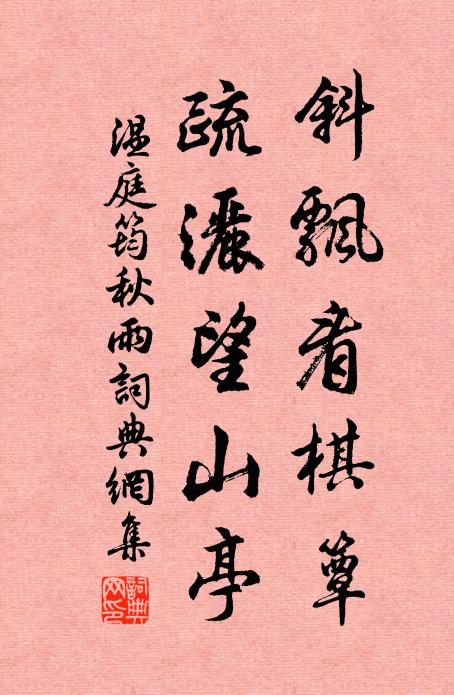 斜飄看棋簟
疏灑望山亭
溫庭筠秋雨詞典網集
詞典網印